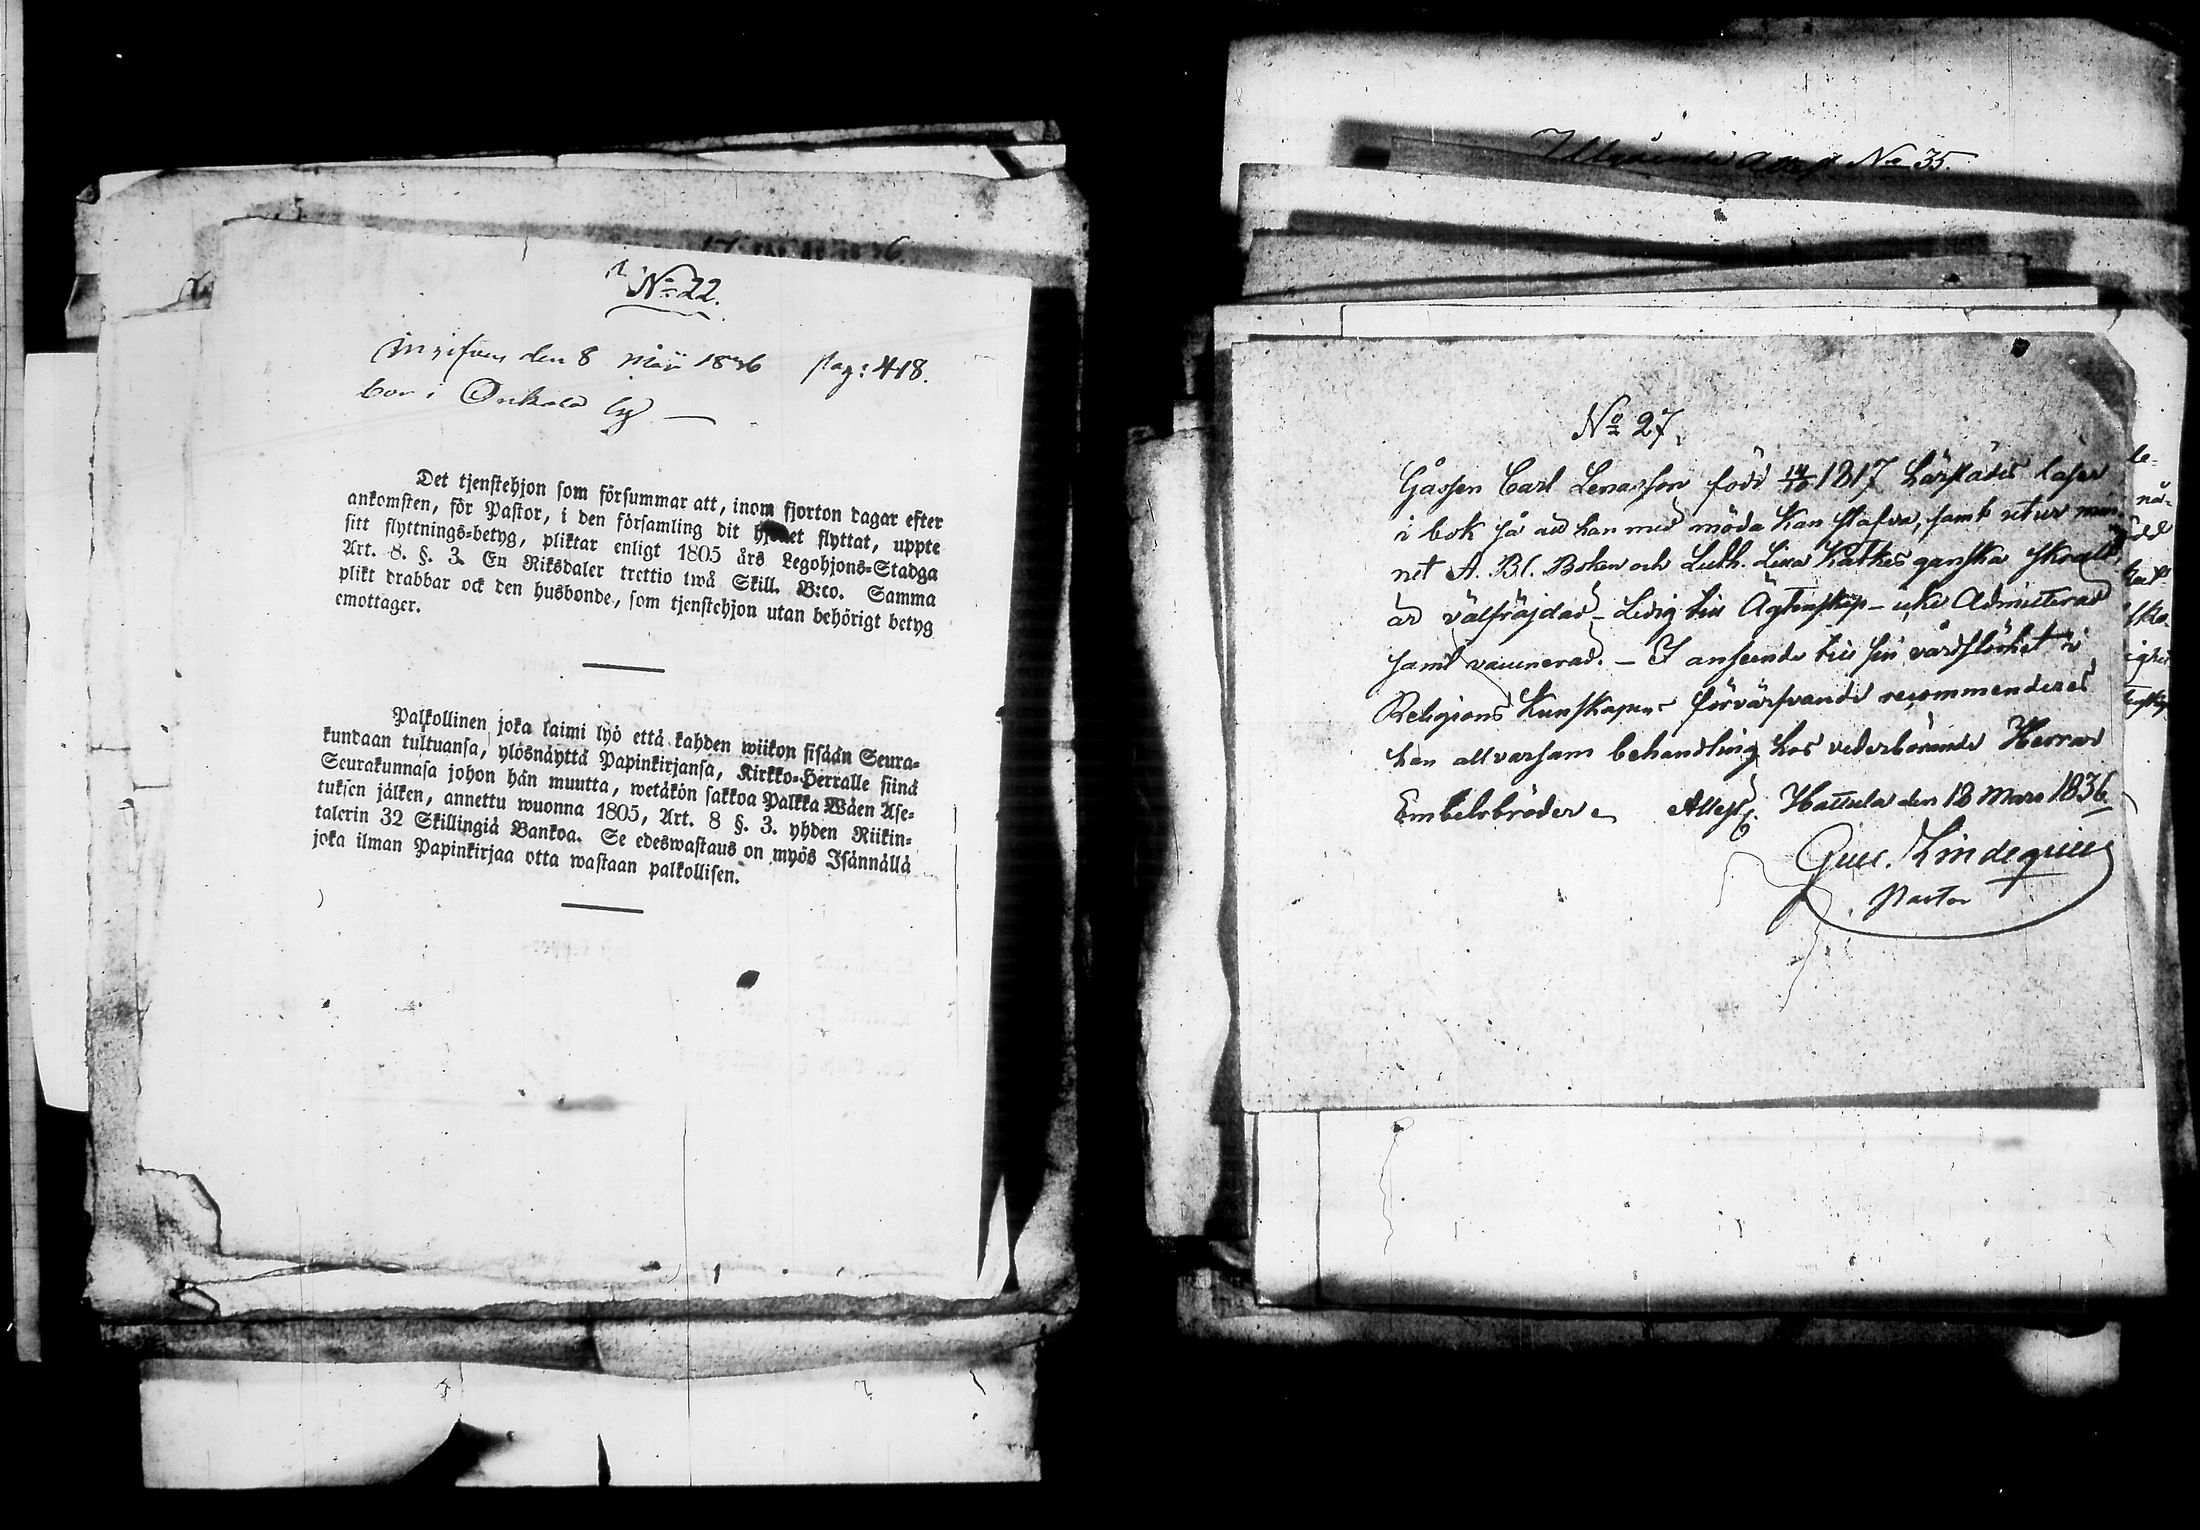 No 22.
Ingifven den 8 Maji 1836 pag: 418.
bor i Onkala by
Det tjenstehjon som försummar att, inom fjorton dagar efter
ankomsten, för Pastor, i den församling dit hjonet flyttat, uppte
sitt flyttnings-betyg, pliktar enligt 1805 års Legohjons-Stadga
Art. 8. §. 3. En Riksdaler trettio twå Skill. B:co. Samma
plikt drabbar ock den husbonde, som tjenstehjon utan behörigt betyg
emottager.
Palkollinen joka laimi lyö että kahden wiikon sisään Seura-
kundaan tultuansa, ylösnäyttä Papinkirjansa, Kirkko-Herralle siinä
Seurakunnasa johon hän muutta, wetäkön sakkoa Palkka Wäen Ase-
tuksen jälken, annettu wuonna 1805, Art. 8 §. 3. yhden Riikin-
talerin 32 Skillingiä Bankoa. Se edeswastaus on myös Isännällä
joka ilman Papinkirjaa otta wastaan palkollisen.
Utgående Attest No 35.
No 27.
Gåssen Carl Lenasson född 14/10 1817 härstädes läser
i bok så att han med möda kan stafva, samt utur min-
net A. B. C. Boken och Luth. Lilla Katkes ganska skralt,
är välfräjdad – Ledig till Ägtenskap – icke Admitterad
samt vaccinerad. – I anseende till sin vårdslöshet i
Religions Kunskapens förvärfvande recommenderes
han allvarsam behandling hos vederbörande Herrar
Embetsbröder Attest. Hattula den 18 Mars 1836
Gust. Lindequist
Pastor